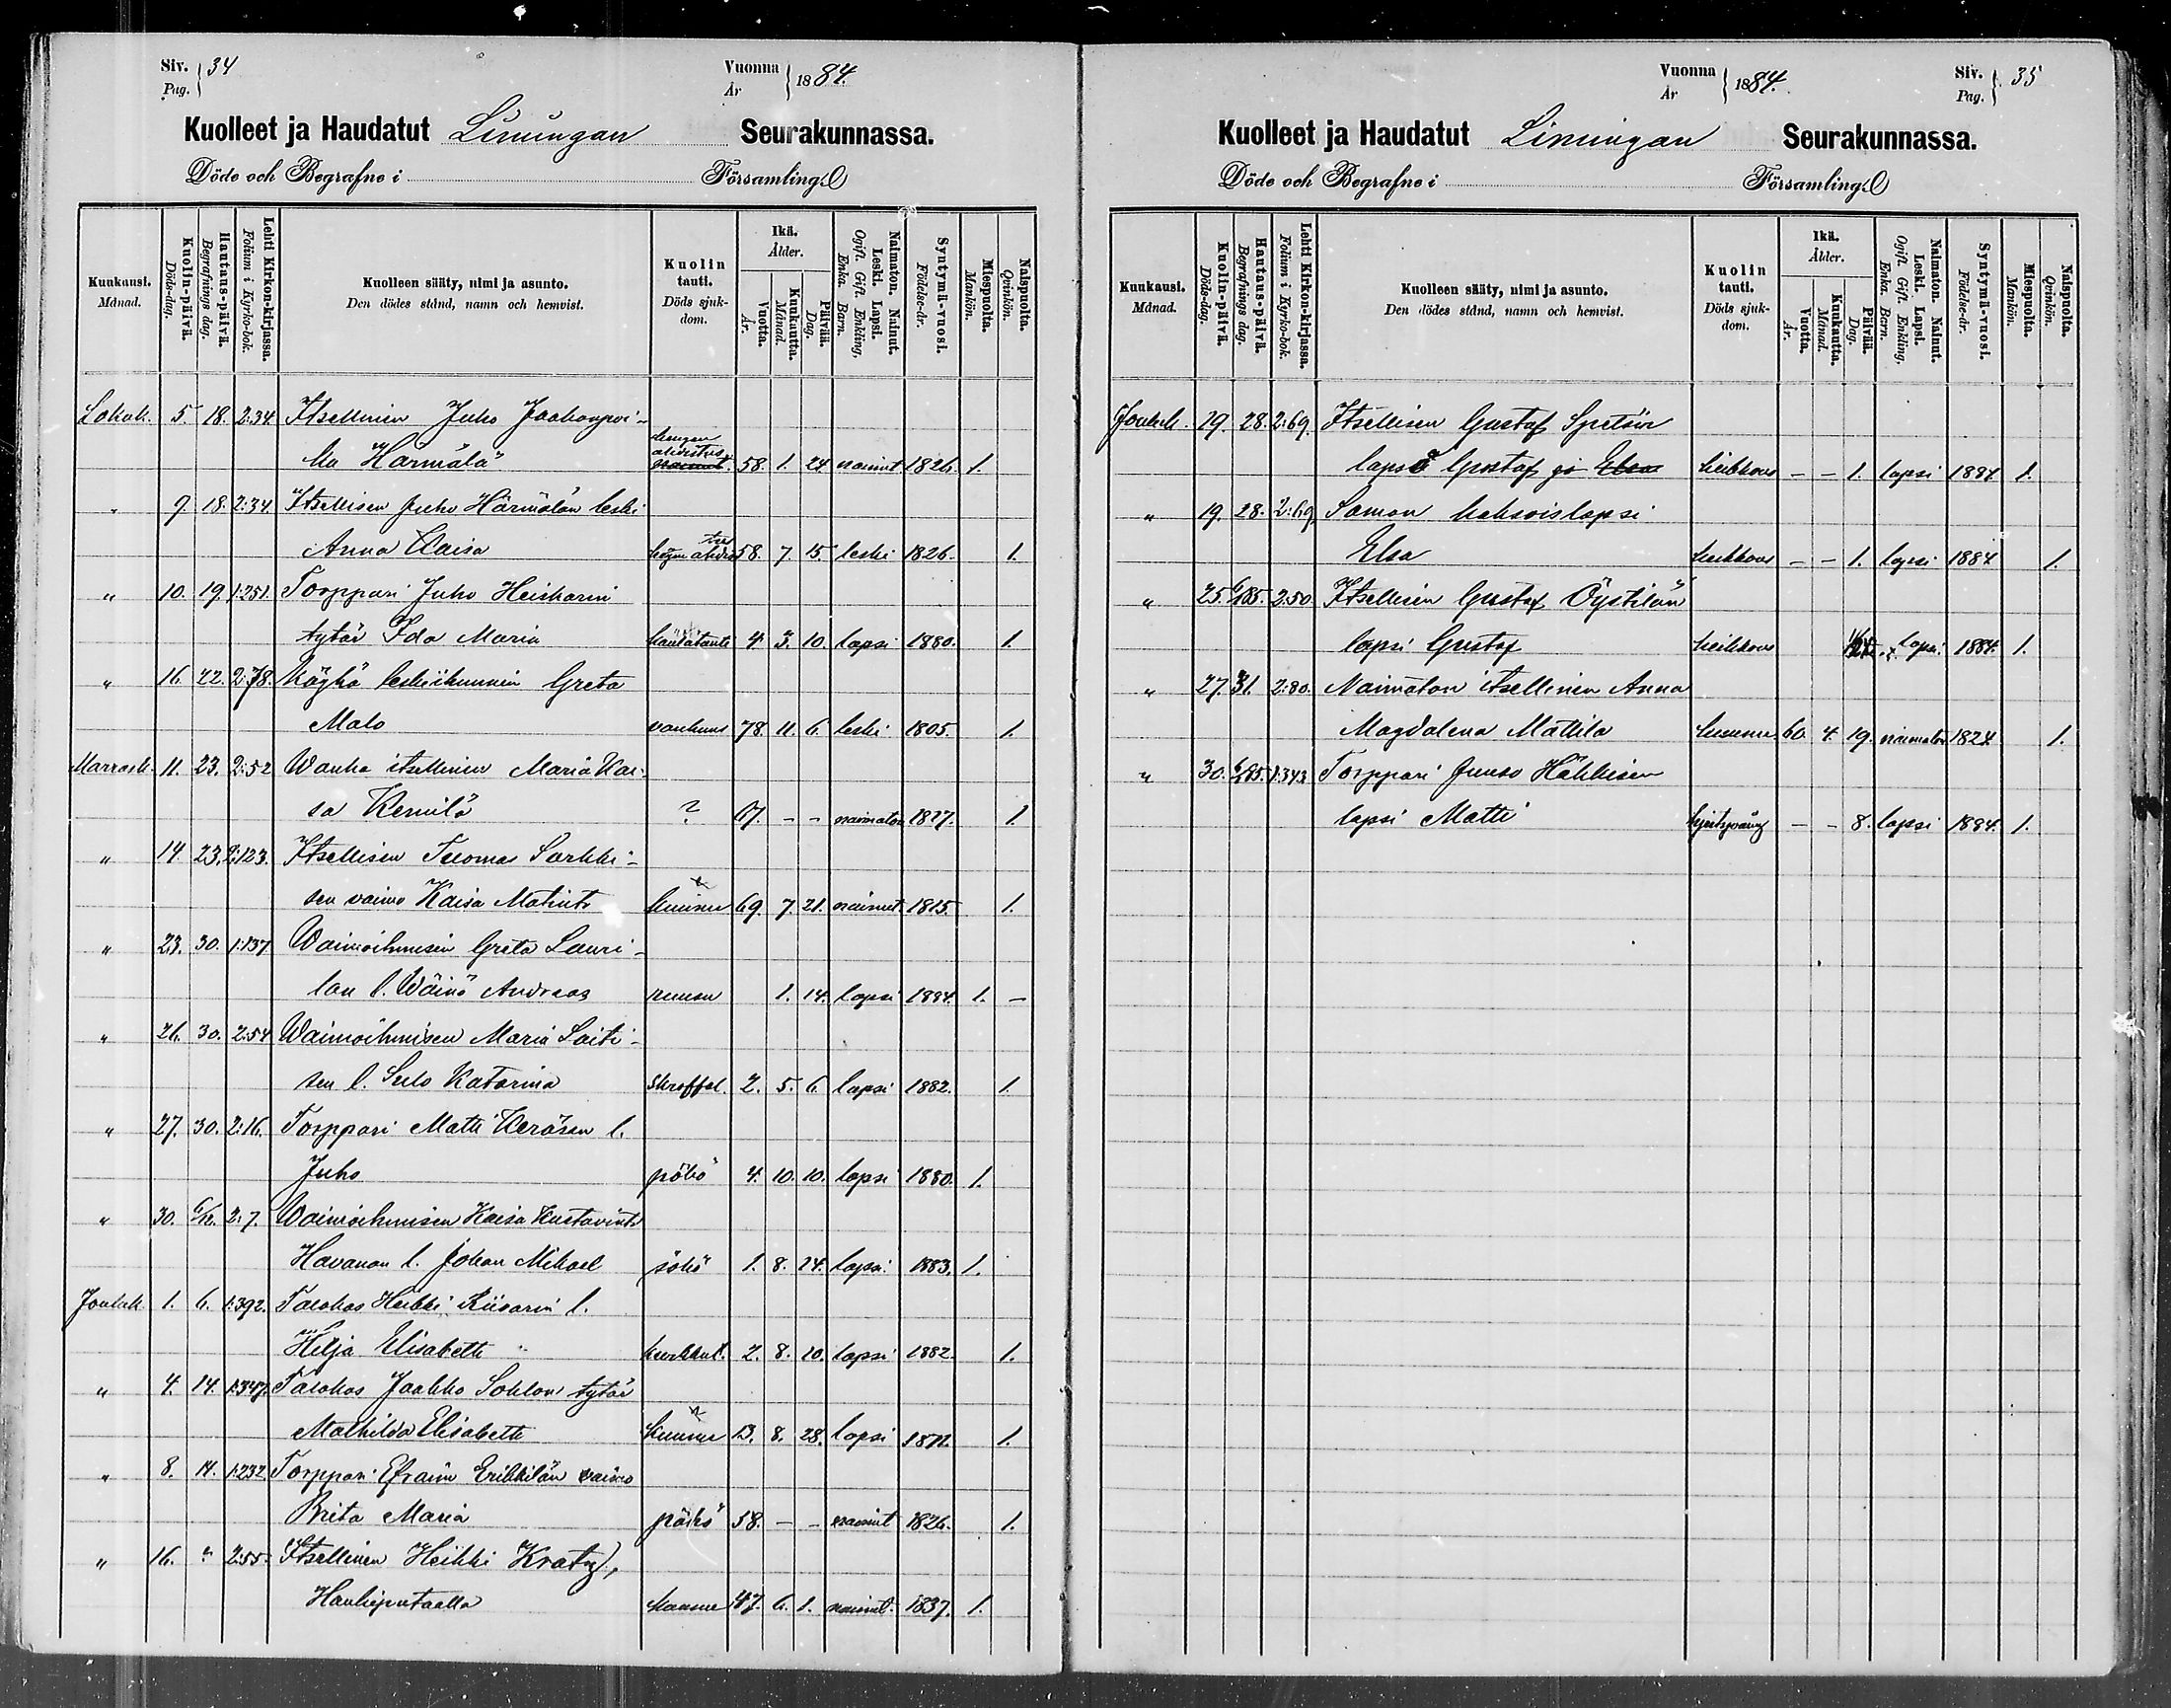 Siv. 34
Pag.
Vuonna 1884.
År
Kuolleet ja Haudatut Limingan Seurakunnassa.
Döde och Begrafne i Församling.
Kuukausi. Månad.
Kuolin-päivä. Döds-dag.
Hautaus-päivä. Begrafnings dag.
Lehti Kirkon-kirjassa. Folium i Kyrko-bok.
Kuolleen sääty, nimi ja asunto. Den dödes stånd, namn och hemvist.
Kuolin tauti. Döds sjukdom.
Ikä. Ålder.
Vuotta. År.
Kuukautta. Månad.
Päivää. Dag.
Naimaton. Nainut. Leski. Lapsi. Ogift. Gift. Enkling. Enka. Barn.
Syntymä-vuosi. Födelse-år.
Miespuolta. Mankön.
Naispuolta. Qvinkön.
Lokak. 5. 18. 2:34 Itsellinen Juho Jaakonpoi-
ka Härmälä hengen ahdistus 58. 1. 24 nainut 1826. 1.
" 9 18. 2:34 Itsellisen Juho Härmälän leski
Anna Kaisa 58. 7. 15. leski 1826. 1.
" 10. 19. 1:251. Torppari Juho Heiskarin
tytär Ida Maria 4. 3. 10. lapsi 1880. 1.
" 16. 22. 2:78. Köyhä leskiihminen Greta
Malo vanhuus 78. 11. 6. leski 1805. 1.
Marrask. 11. 23. 2:52 Wanha itsellinen Maria Kai-
sa Kemilä ? 67. - - naimaton 1827. 1
" 14 23. 2:123. Itsellisen Tuomas Sarkki-
sen vaimo Kaisa Matint. kuume 69. 7. 21. nainut 1815. 1.
" 23. 30. 1:137 Waimoihmisen Greta Lauri-
lan l. Wäinö Andreas 1. 14. lapsi 1884. 1. -
" 26. 30. 2:54 Waimoihmisen Maria Laiti-
sen l. Sulo Katarina skroffel. 2. 5. 6. lapsi 1882. 1.
" 27. 30. 2:16. Torppari Matti Keräsen l.
Juho pöhö 4. 10. 10. lapsi 1880. 1.
" 30. 6/12. 2:7. Waimoihmisen Kaisa Kustavint.
Havanan l. Johan Mikael 1. 8. 24. lapsi 1883. 1.
Jouluk. 1. 6. 1:392. Talokas Heikki Riisarin l.
Hilja Elisabetti kurkkut. 2. 8. 10. lapsi 1882. 1.
" 4. 14. 1:347. Talokas Jaakko Sohlon tytär
Mathilda Elisabetti kuume 13. 8. 28. lapsi 1871. 1.
" 8. 14. 1:232 Torppari Efraim Erikkilän vaimo
Brita Maria pöhö 58. - - nainut 1826. 1.
" 16. " 2:55. Itsellinen Heikki Kratz),
Haukiputaalla kuume 47. 6. 1. nainut 1837. 1.
Vuonna 1884.
År
Siv. 35
Pag.
Kuolleet ja Haudatut Limingan Seurakunnassa.
Döde och Begrafne i Församling.
Kuukausi. Månad.
Kuolin-päivä. Döds-dag.
Hautaus-päivä. Begrafnings dag.
Lehti Kirkon-kirjassa. Folium i Kyrko-bok.
Kuolleen sääty, nimi ja asunto. Den dödes stånd, namn och hemvist.
Kuolin tauti. Döds sjukdom.
Ikä. Ålder.
Vuotta. År.
Kuukautta. Månad.
Päivää. Dag.
Naimaton. Nainut. Leski. Lapsi. Ogift. Gift. Enkling. Enka. Barn.
Syntymä-vuosi. Födelse-år.
Miespuolta. Mankön.
Naispuolta. Qvinkön.
Jouluk. 19. 28. 2:69. Itsellisen Gustaf
lapsi Gustaf ja Elsa heikkous - - 1. lapsi 1884 1.
" 19. 28. 2:69. Saman kaksoislapsi
Elsa heikkous - - 1. lapsi 1884 1.
" 25. 6/1 85. 2:50. Itsellisen Gustaf Öystilän
lapsi Gustaf heikkous lapsi 1884. 1.
" 27. 31. 2:80. Naimaton itsellinen Anna
Magdalena Mattila kuume 60. 4. 19. naimaton 1824 1.
" 30. 6/1 85. 1:343. Torppari Juuso Häkkisen
lapsi Matti - - 8. lapsi 1884. 1.